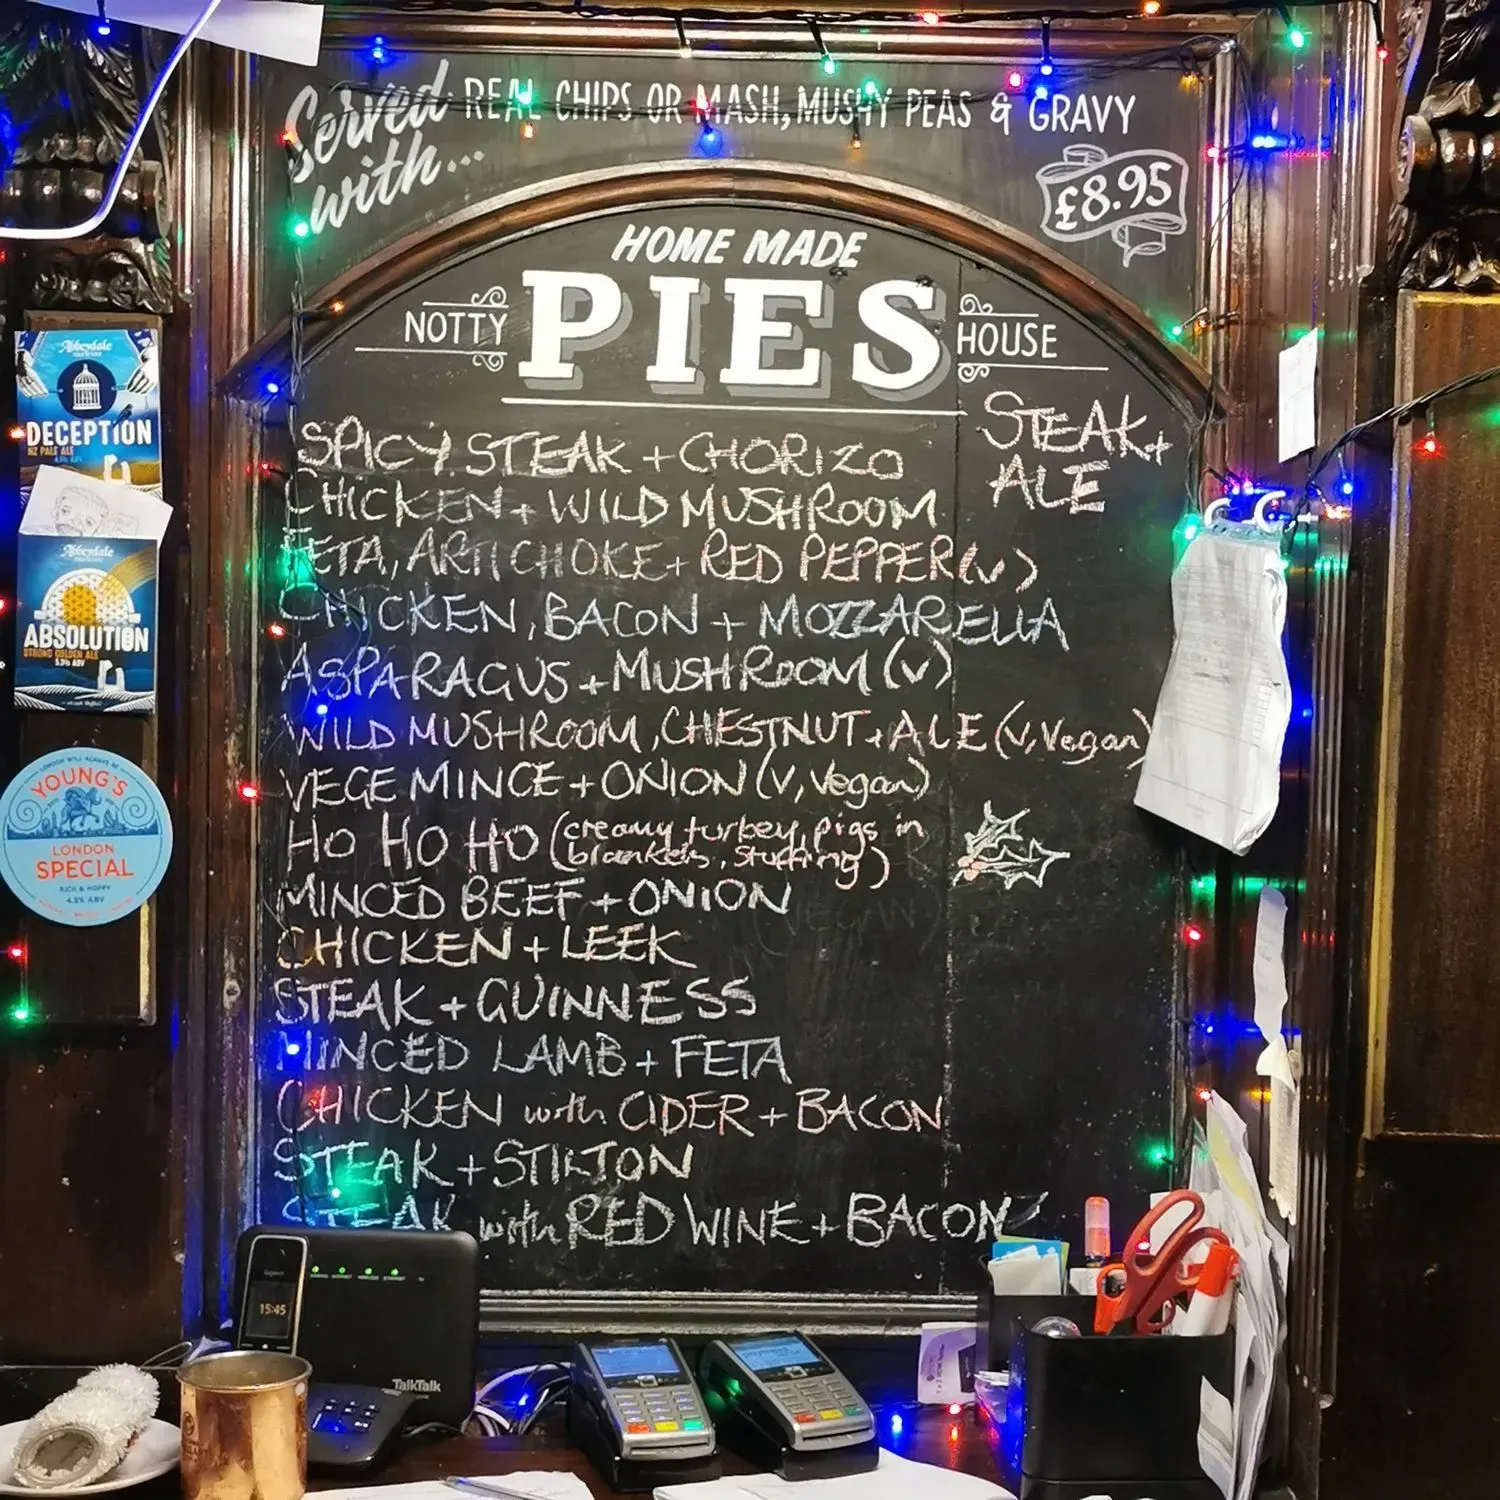 Served with... REAL CHIPS OR MASH, MUSHY PEAS & GRAVY
£8.95
HOME MADE
NOTTY PIES HOUSE
STEAK +
ALE
SPICY STEAK + CHORIZO
CHICKEN + WILD MUSHROOM
FETA, ARTICHOKE + RED PEPPER (v)
CHICKEN, BACON + MOZZARELLA
ASPARAGUS + MUSHROOM (v)
WILD MUSHROOM, CHESTNUT + ALE (v, Vegan)
VEGE MINCE + ONION (v, Vegan)
HO HO HO (creamy turkey, pigs in
blankets, stuffing)
MINCED BEEF + ONION
CHICKEN + LEEK
STEAK + GUINNESS
MINCED LAMB + FETA
CHICKEN with CIDER + BACON
STEAK + STILTON
STEAK with RED WINE + BACON
Abbeydale
DECEPTION
NZ PALE ALE
4.1% ABV
Abbeydale
ABSOLUTION
STRONG GOLDEN ALE
5.3% ABV
LONDON WILL ALWAYS BE
YOUNG'S
LONDON
SPECIAL
RICH & HOPPY
4.5% ABV
15:45
TalkTalk